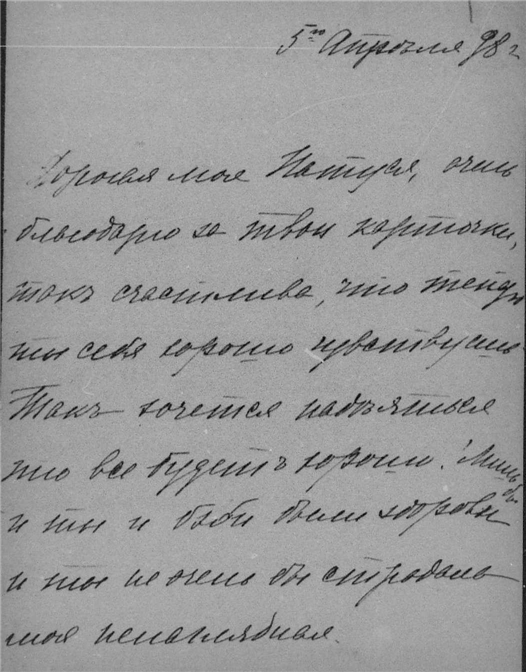 5го Апрѣля 98 г
Дорогая моя Натуся, очень
благодарю за твои карточки,
такъ счастлива, что теперь
ты себя хорошо чувствуешь.
Такъ хочется надѣяться
что все будетъ хорошо! Лишь бы
и ты и бэби были здоровы
и ты не очень бы страдала
моя ненаглядная.